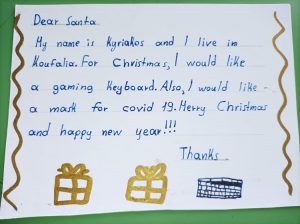 Dear Santa
My name is Kyriakos and I live in
Koufalia. For Christmas, I would like
a gaming Keyboard. Also, I would like -
a mask for covid 19. Merry Christmas
and happy new year!!!
Thanks